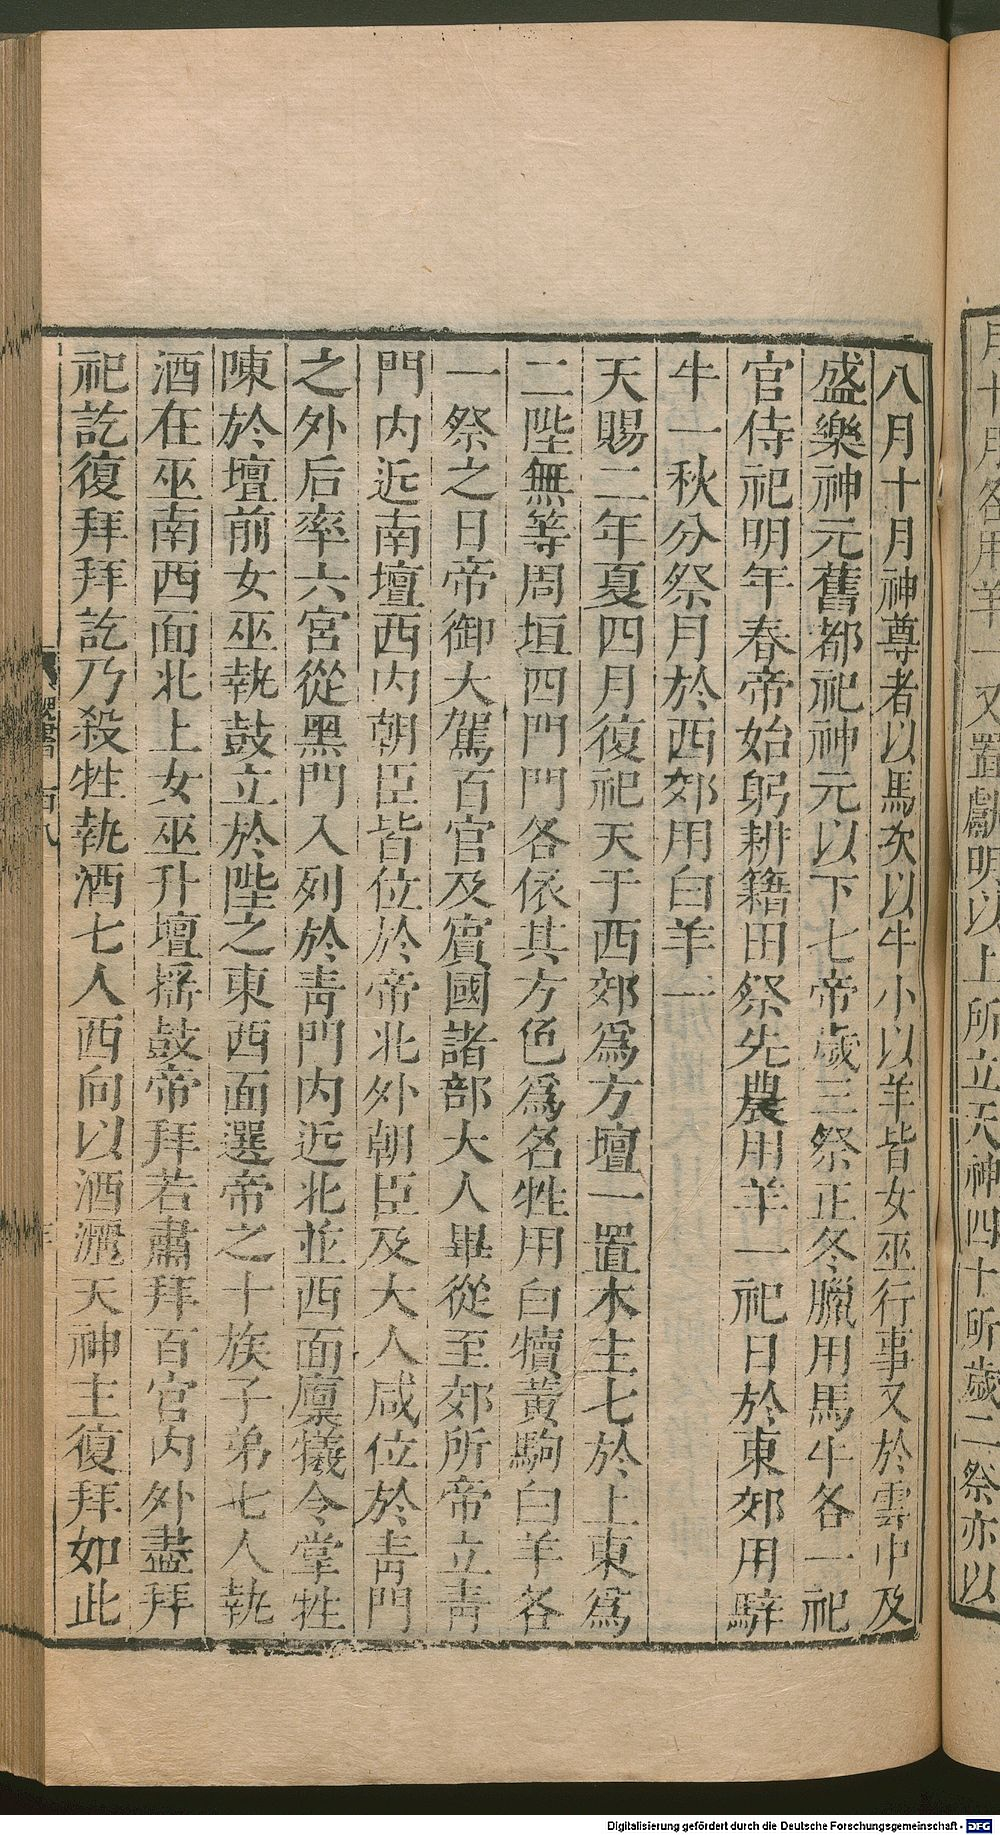 月十月各用羊一又置獻明以上所立天神四十所歲二祭亦以
八月十月神尊者以馬次以牛小以羊皆女巫行事又於雲中及
盛樂神元舊都祀神元以下七帝歲三祭正冬臘用馬牛各一祀
官侍祀明年春帝始躬耕籍田祭先農用羊一祀日於東郊用騂
牛一秋分祭月於西郊用白羊一
天賜二年夏四月復祀天于西郊爲方壇一置木主七於上東爲
二陛無等周垣四門門各依其方色爲名牲用白犢黃駒白羊各
一祭之日帝御大駕百官及賓國諸部大人畢從至郊所帝立青
門内近南壇西内朝臣皆位於帝北外朝臣及大人咸位於青門
之外后率六宮從黑門入列於青門内近北並西面廩犧令掌牲
陳於壇前女巫執鼓立於陛之東西面選帝之十族子弟七人執
酒在巫南西面北上女巫升壇搖鼓帝拜若肅拜百官内外盡拜
祀訖復拜拜訖乃殺牲執酒七人西向以酒灑天神主復拜如此
魏書 百八
Digitalisierung gefördert durch die Deutsche Forschungsgemeinschaft - DFG